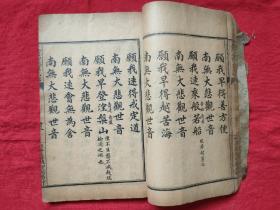 願我早得善方便
南無大悲觀世音
願我速乘般若船
南無大悲觀世音
願我早得越苦海
南無大悲觀世音
願我速得戒定道
南無大悲觀世音
願我早登涅槃山
南無大悲觀世音
願我速會無為舍
南無大悲觀世音